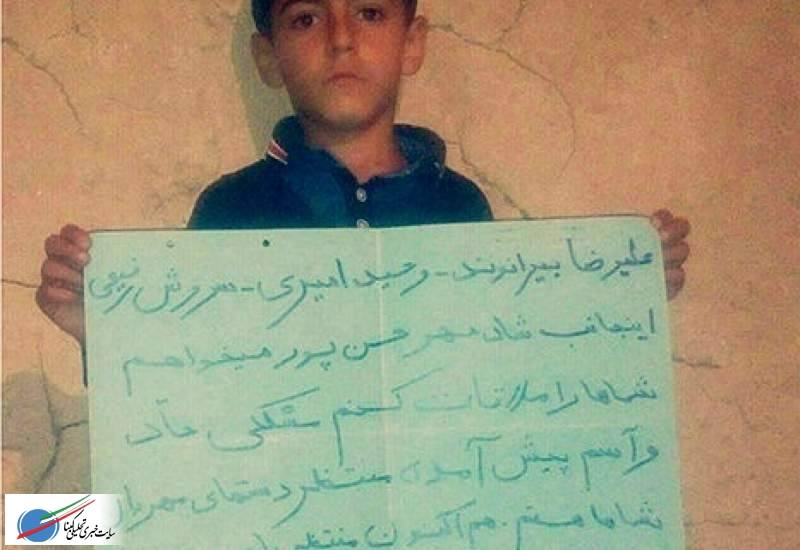 علیرضا بیرانوند - وحید امیری - سروش رفیعی
اینجانب شادمهر حسن پور میخواهم
شما را ملاقات کنم مشکلی حاد
وآسم پیش آمده منتظر دستهای مهربان
شما هستم. هم اکنون منتظر
سایت خبری تحلیلی